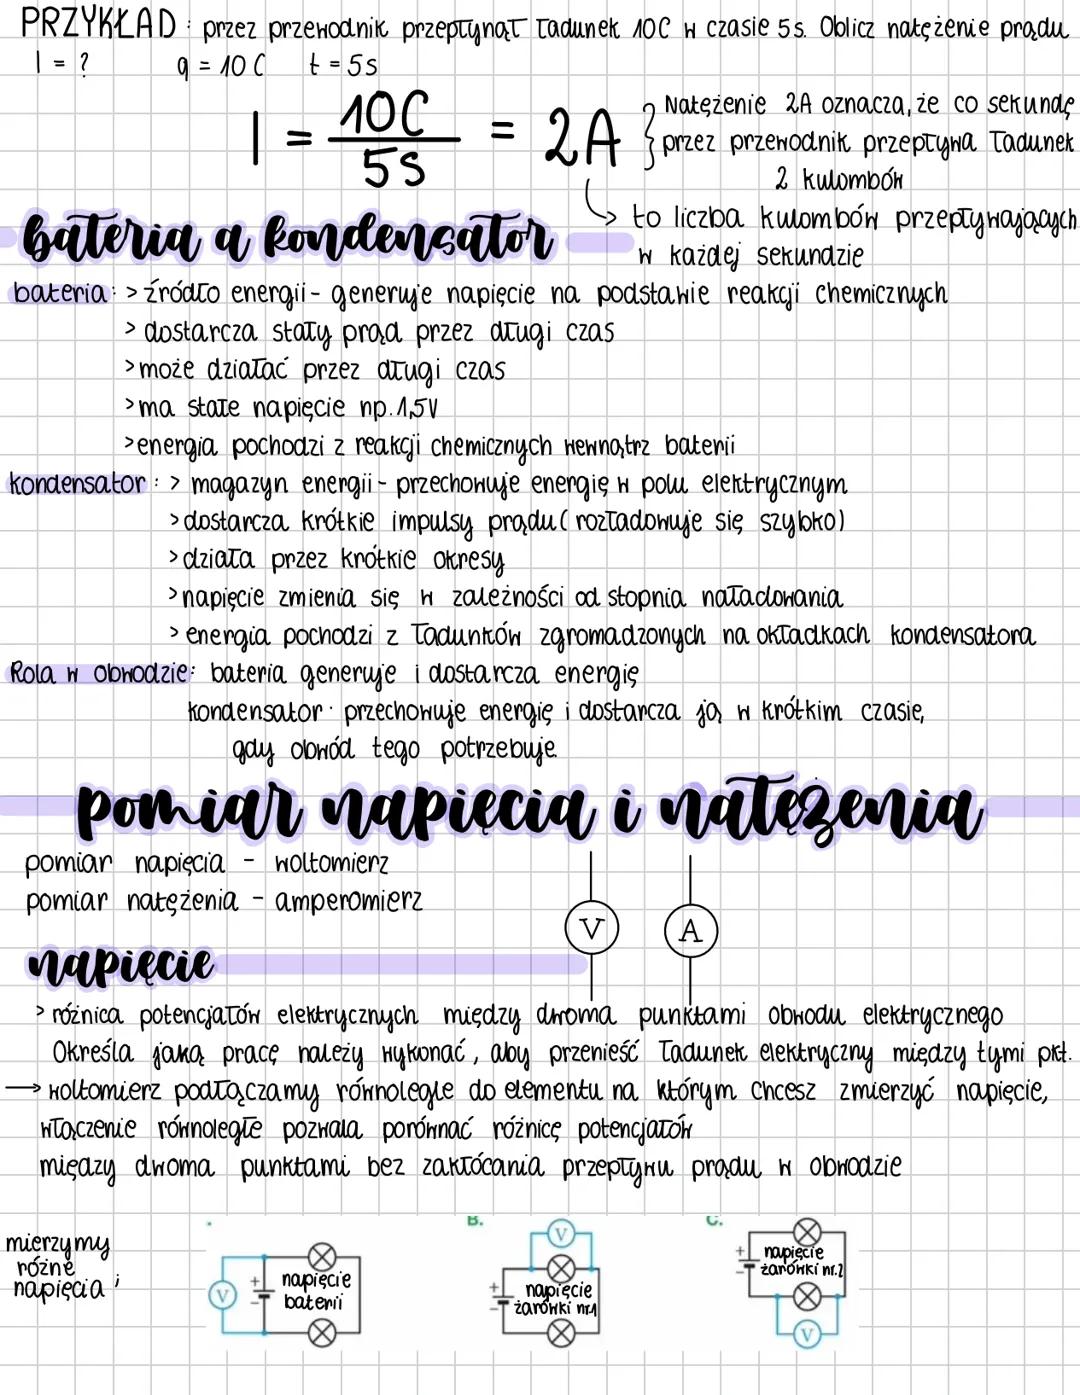 PRZYKŁAD : przez przewodnik przepłynął ładunek 10C w czasie 5s. Oblicz natężenie prądu
I = ? q = 10 C t = 5s
I = 10C / 5s = 2A } Natężenie 2A oznacza, że co sekundę
przez przewodnik przepływa ładunek
2 kulombów
↳ to liczba kulombów przepływających
w każdej sekundzie
bateria a kondensator
bateria: > źródło energii - generuje napięcie na podstawie reakcji chemicznych
> dostarcza stały prąd przez długi czas
> może działać przez długi czas
> ma stałe napięcie np. 1,5V
> energia pochodzi z reakcji chemicznych wewnątrz baterii
kondensator : > magazyn energii - przechowuje energię w polu elektrycznym
> dostarcza krótkie impulsy prądu ( rozładowuje się szybko)
> działa przez krótkie okresy
> napięcie zmienia się w zależności od stopnia naładowania
> energia pochodzi z ładunków zgromadzonych na okładkach kondensatora
Rola w obwodzie: bateria generuje i dostarcza energię
kondensator · przechowuje energię i dostarcza ją w krótkim czasie,
gdy obwód tego potrzebuje.
pomiar napięcia i natężenia
pomiar napięcia - woltomierz
pomiar natężenia - amperomierz
V A
napięcie
> różnica potencjałów elektrycznych między dwoma punktami obwodu elektrycznego
Określa jaką pracę należy wykonać, aby przenieść ładunek elektryczny między tymi pkt.
→ woltomierz podłączamy równolegle do elementu na którym chcesz zmierzyć napięcie,
włączenie równoległe pozwala porównać różnicę potencjałów
między dwoma punktami bez zakłócania przepływu prądu w obwodzie
mierzymy
różne
napięcia ;
V + - napięcie
baterii
B.
V + - napięcie
żarówki nr.1
C.
+ - napięcie
żarówki nr.2
V